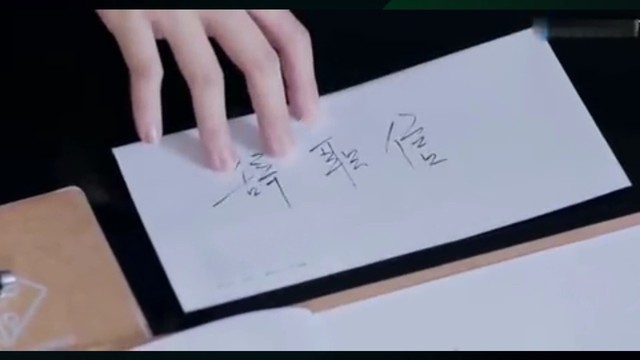 辞职信